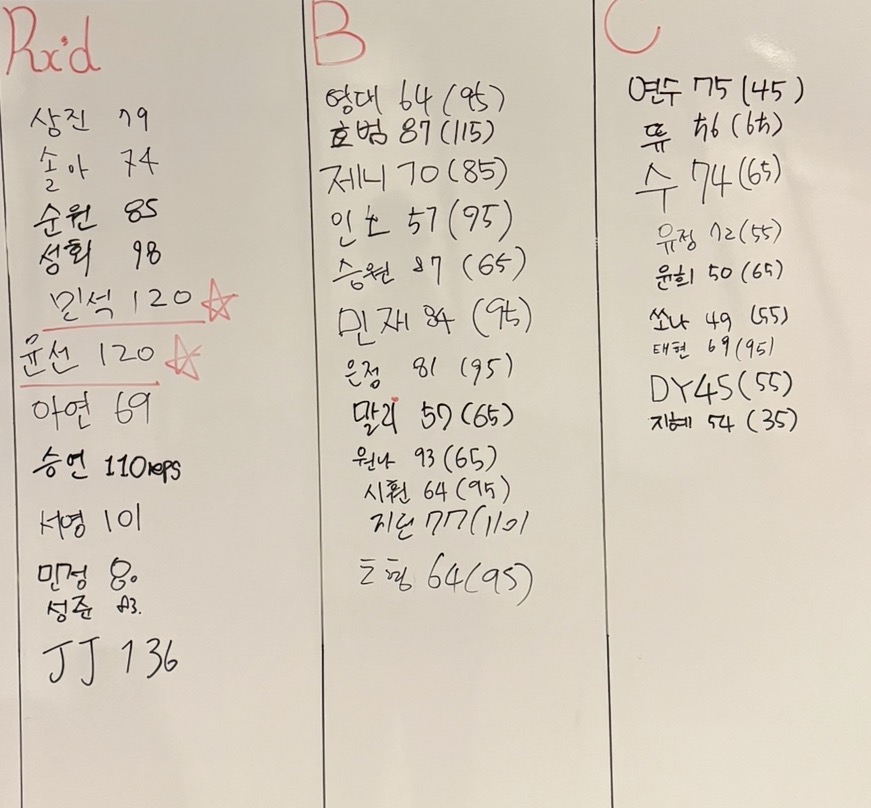 Rx'd
삼진 79
솔아 74
순원 85
성회 98
민석 120
윤선 120
아연 69
승연 110reps
서영 101
민정 80
성준 83.
JJ 136
B
영대 64 (95)
호범 87 (115)
제니 70 (85)
인호 57 (95)
승원 87 (65)
민재 84 (95)
은정 81 (95)
말리 57 (65)
원나 93 (65)
시훤 64 (95)
지던 77 (110)
64 (95)
C
연수 75 (45)
뜦 56 (65)
수 74 (65)
유정 72 (55)
윤희 50 (65)
쏘나 49 (55)
태현 69 (95)
DY 45 (55)
지혜 54 (35)